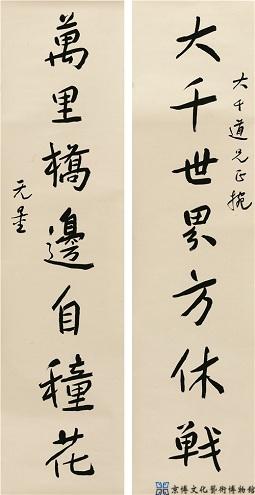 大千道兄正捥
大千世界方休戦
萬里橋邊自穜花
无量
京博文化藝術博物館